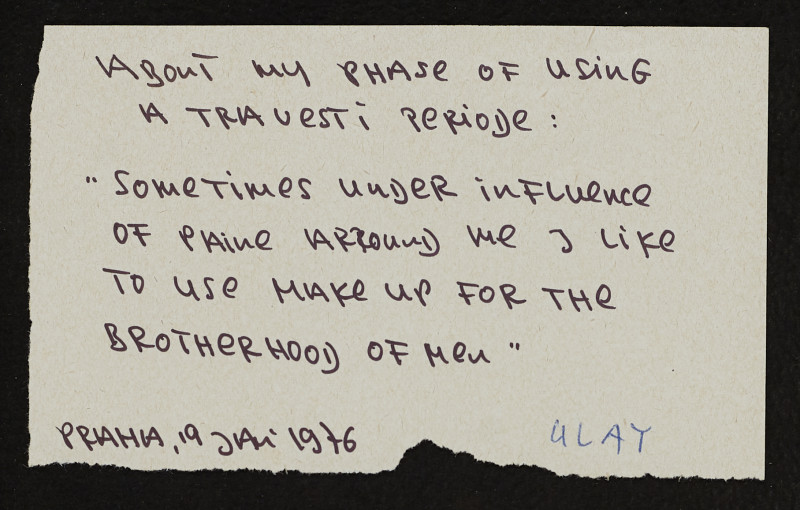 ABOUT MY PHASE OF USING
A TRAVESTI PERIODE :
" SOMETIMES UNDER INFLUENCE
OF PAINE ARROUND ME J LIKE
TO USE MAKE UP FOR THE
BROTHERHOOD OF MEN "
PRAHA, 19 JAN 1976 ULAY